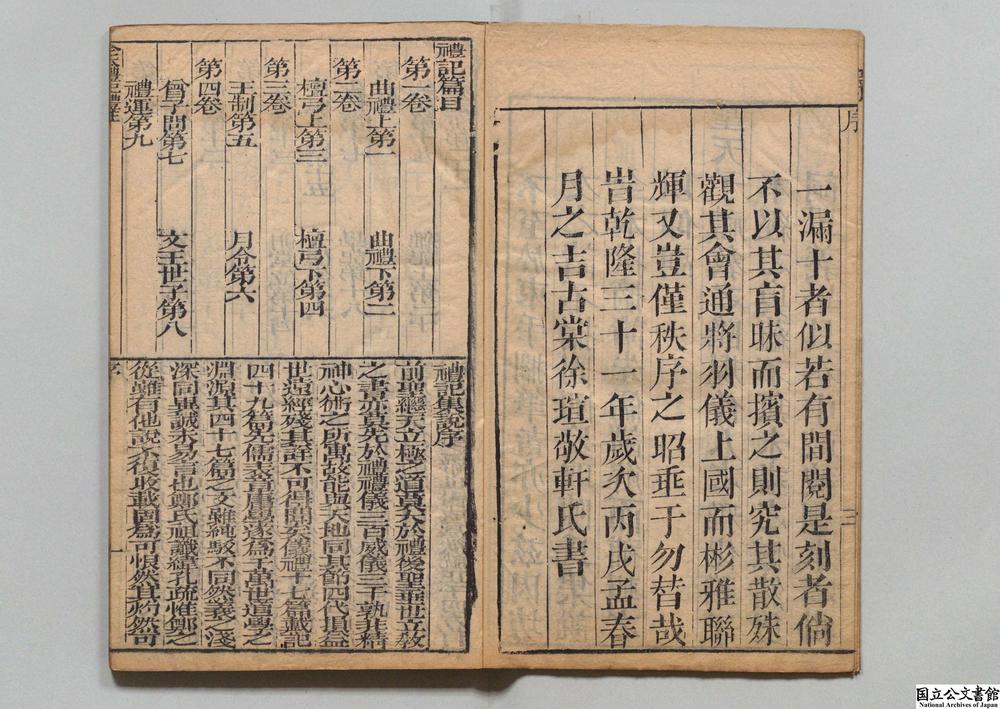 序
一漏十者似若有間閱是刻者倘
不以其盲昧而擯之則究其散殊
觀其會通將羽儀上國而彬雅聯
輝又豈僅秩序之昭垂于勿替哉
旹乾隆三十一年歲次丙戌孟春
月之吉古棠徐瑄敬軒氏書
三
禮記篇目
第一卷
曲禮上第一
曲禮下第二
第二卷
檀弓上第三
檀弓下第四
第三卷
王制第五
月令第六
第四卷
曾子問第七
文王世子第八
禮運第九
禮記集說序
前聖繼天立極之道莫大於禮後聖垂世立教
之書亦莫先於禮禮儀三百威儀三千孰非精
神心術之所寓故能與天地同其節四代損益
世遠經殘其詳不可得聞矣儀禮十七篇戴記
四十九篇先儒表章庸學遂為千萬世道學之
淵源其四十七篇之文雖純駁不同然義之淺
深同異誠未易言也鄭氏祖讖緯孔疏惟鄭之
從雖有他說不復收載固為可恨然其灼然可
序
一
国立公文書館
National Archives of Japan